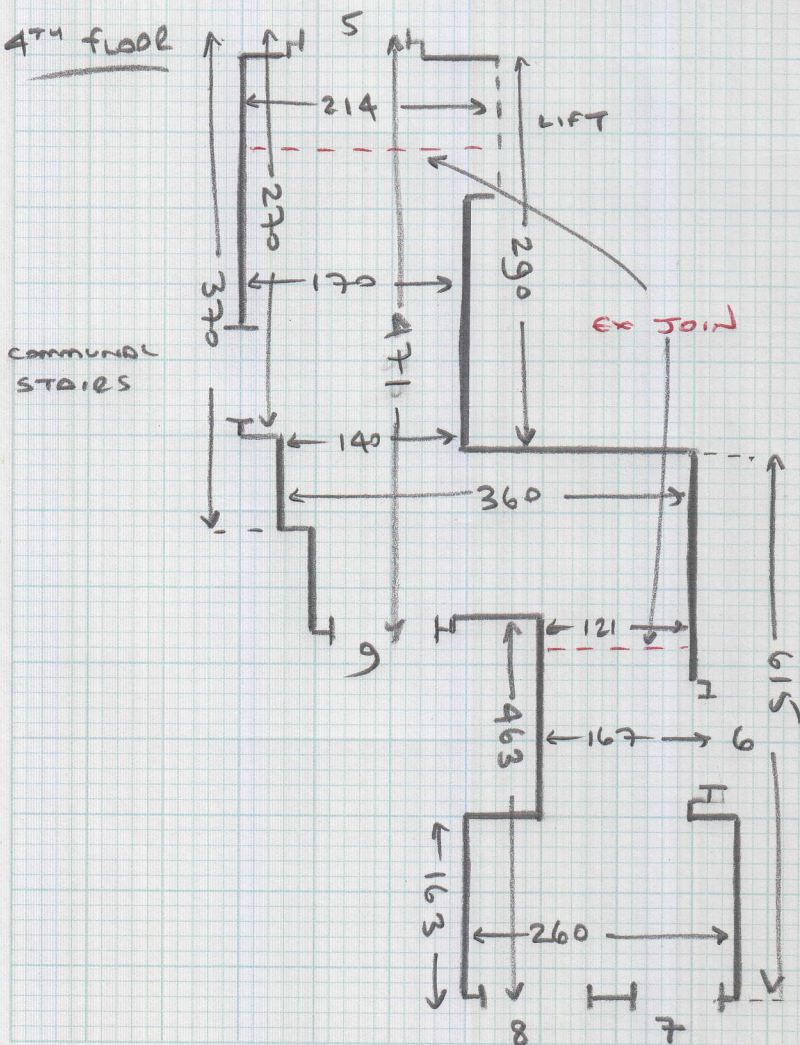 5
4TH FLOOR
214
LIFT
270
290
170
370
EX JOIN
471
COMMUNAL
STAIRS
140
360
121
9
615
463
167
6
163
260
8
7